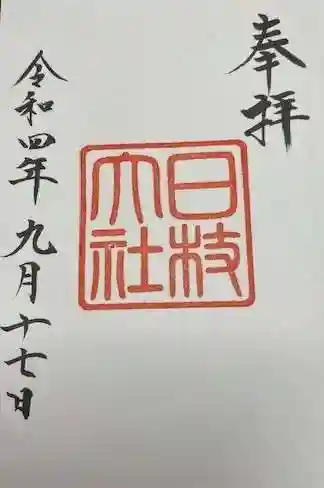 奉拝
日枝
大社
令和四年九月十七日